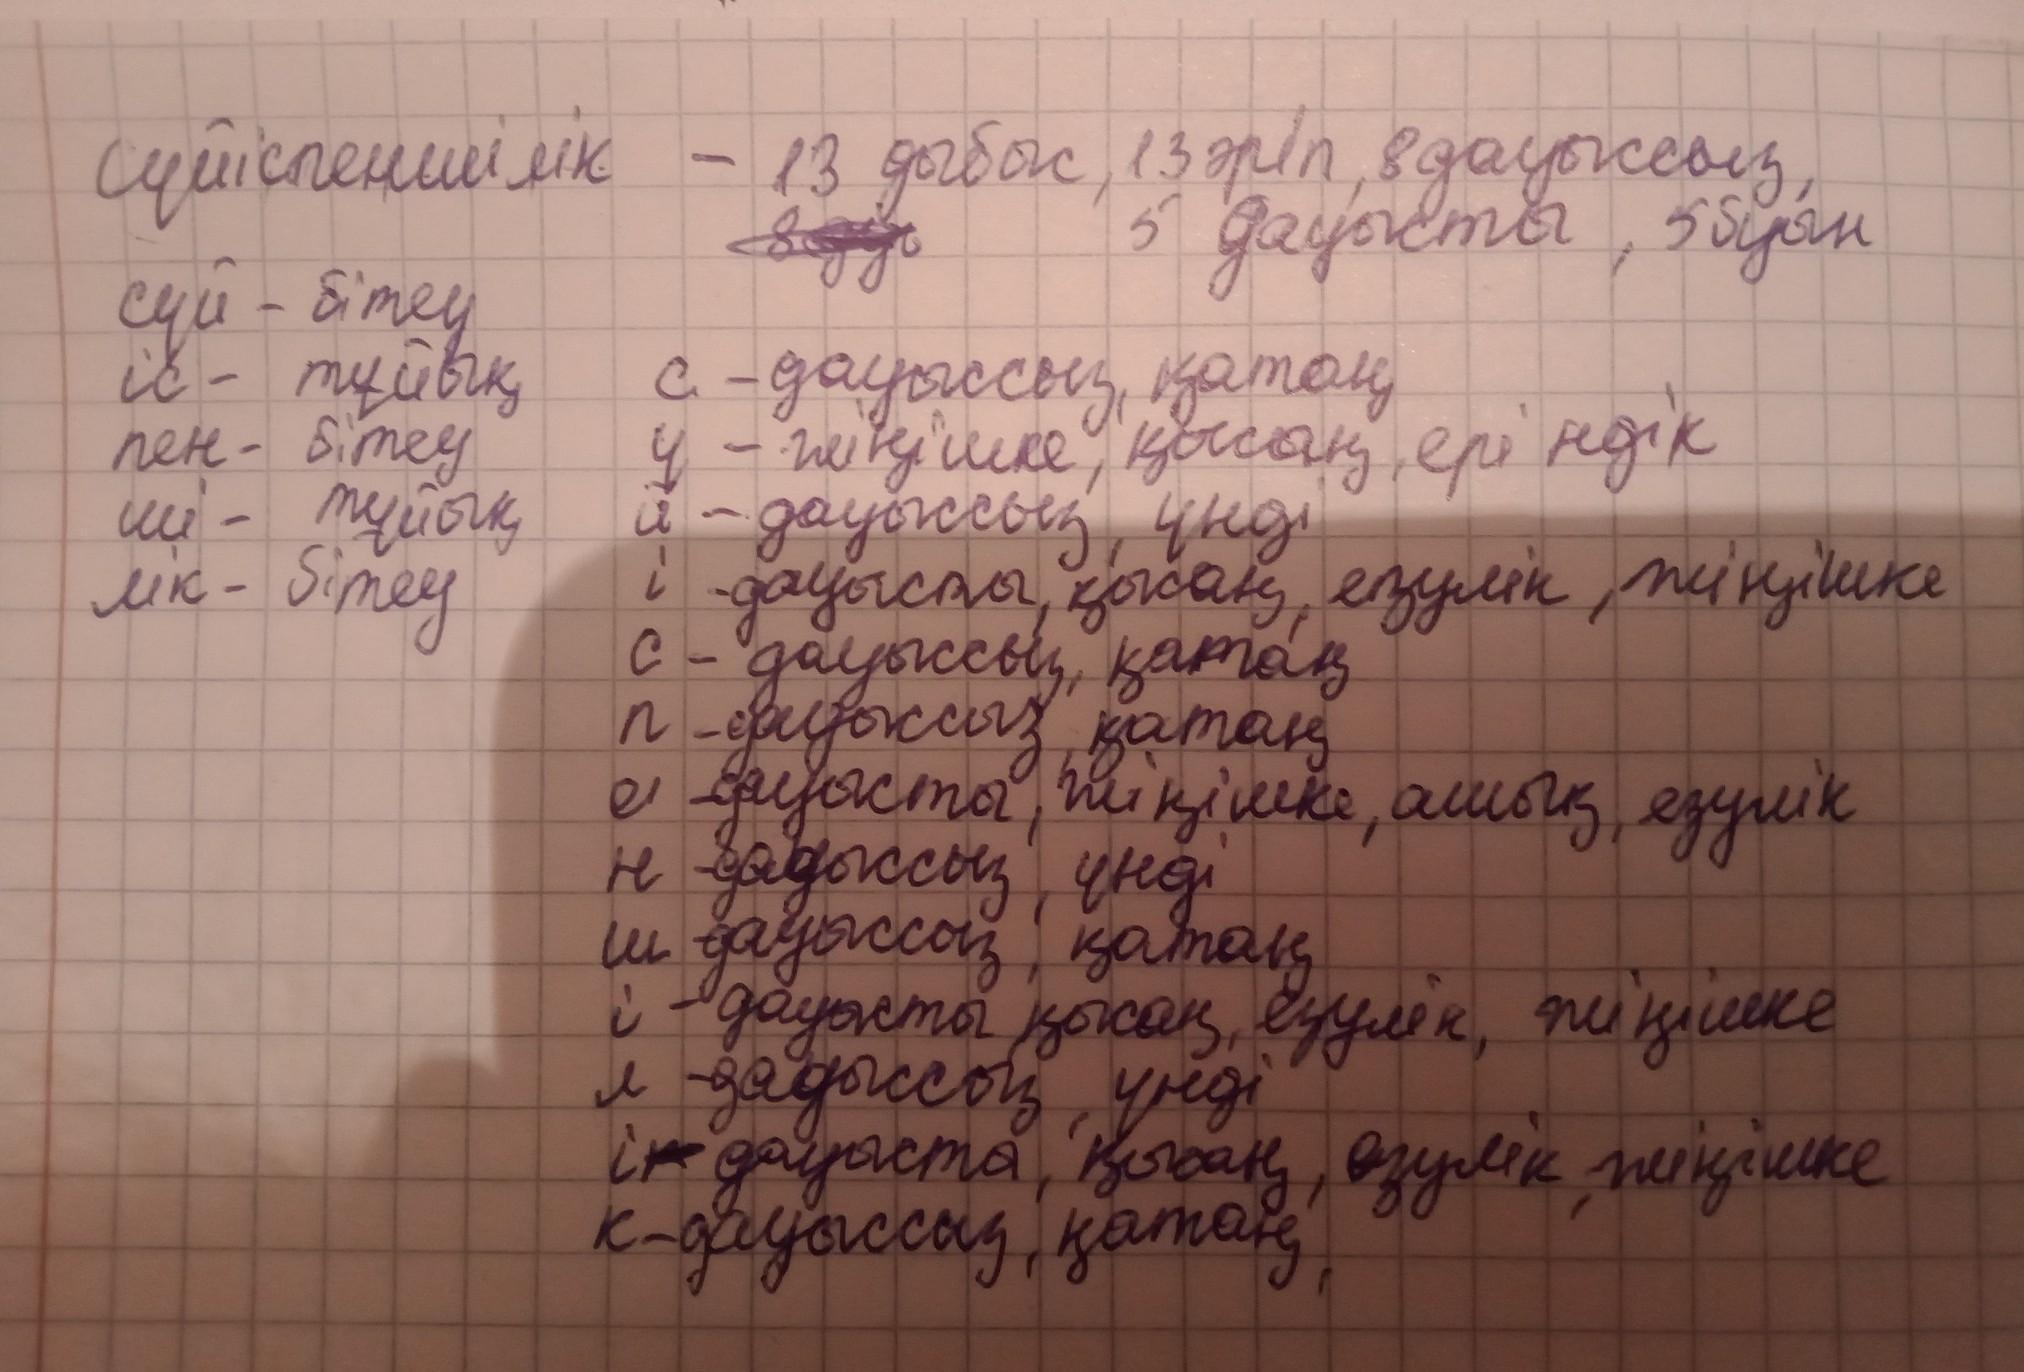 сүйіспеншілік - 13 дыбыс, 13 әріп, 8 дауыссыз,
5 дауысты, 5 буын
сүй - бітеу
іс - тұйық
пен - бітеу
ші - тұйық
лік - бітеу
с - дауыссыз, қатаң
ү - жіңішке, қысаң, еріндік
й - дауыссыз, үнді
і - дауысты, қысаң, езулік, жіңішке
с - дауыссыз, қатаң
п - дауыссыз, қатаң
е - дауысты, жіңішке, ашық, езулік
н - дауыссыз, үнді
ш - дауыссыз, қатаң
і - дауысты, қысаң, езулік, жіңішке
л - дауыссыз, үнді
і - дауыста, қысаң, езулік, жіңішке
к - дауыссыз, қатаң,